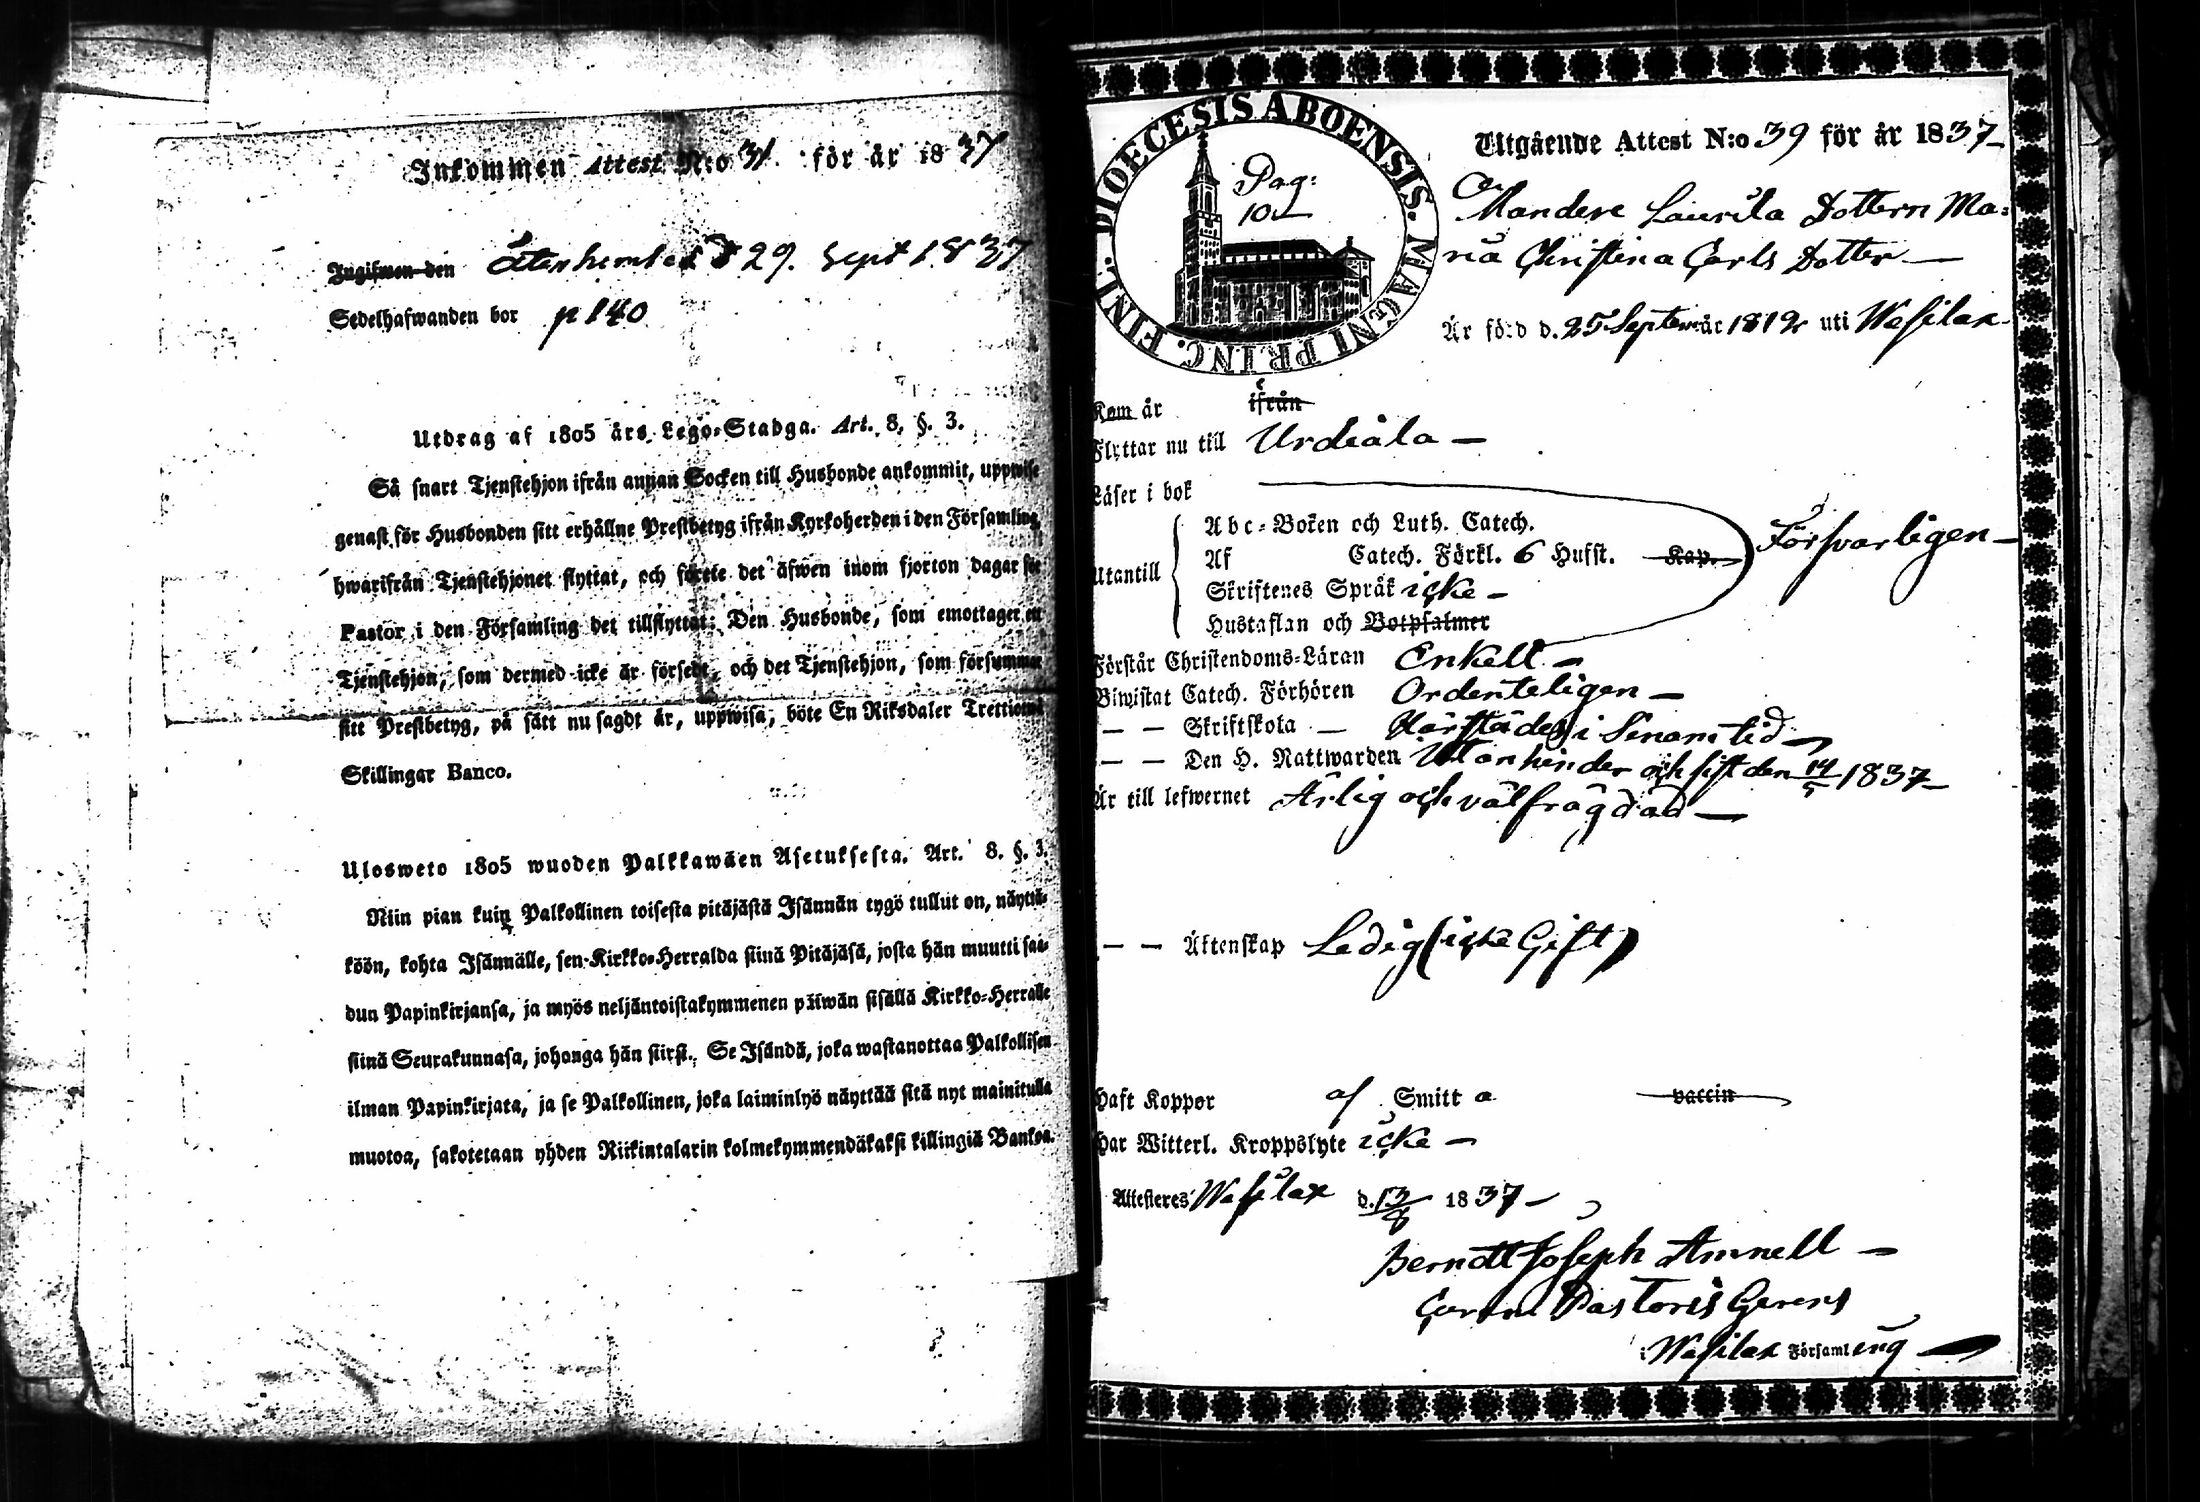 Inkommen Attest N:o 31. för år 1837
Ingifwen den Återhemtad d 29. Sept 1837
Sedelhafwanden bor p 140
Utdrag af 1805 års Lego-Stadga. Art. 8. §. 3.
Så snart Tjenstehjon ifrån annan Socken till Husbonde ankommit, uppwise
genast för Husbonden sitt erhållne Prestbetyg ifrån Kyrkoherden i den Församling,
hwarifrån Tjenstehjonet flyttat, och förete det äfwen inom fjorton dagar för
Pastor i den Församling det tillflyttat: Den Husbonde, som emottager en
Tjenstehjon, som dermed icke är försedt, och det Tjenstehjon, som försummar
sitt Prestbetyg, på sätt nu sagdt är, uppwisa, böte En Riksdaler Trettiotwå
Skillingar Banco.
Ulosweto 1805 wuoden Palkkawäen Asetuksesta. Art. 8. §. 3.
Niin pian kuin Palkollinen toisesta pitäjästä Isännän tygö tullut on, näyttä-
köön, kohta Isännälle, sen Kirkko-Herralda siinä Pitäjäsä, josta hän muutti saa-
dun Papinkirjansa, ja myös neljäntoistakymmenen päiwän sisällä Kirkko-Herralle
siinä Seurakunnasa, johonga hän siirst. Se Isändä, joka wastanottaa Palkollisen
ilman Papinkirjata, ja se Palkollinen, joka laiminlyö näyttää sitä nyt mainitulla
muotoa, sakotetaan yhden Riikintalarin kolmekymmendäkaksi killingiä Bankoa.
DIOECESIS ABOENSIS. MAGNI PRINC. FINL.
Pag:
101
Utgående Attest N:o 39 för år 1837
Mandere Laurila Dottern Ma-
ria Christina Carls Dotter
Är född d. 25 Septem år 1812 uti Wesilax
Kom år ifrån
Flyttar nu till Urdiala
Läser i bok
Abc-Boken och Luth. Catech.
Utantill Af Catech. Förkl. 6 Hufst. Kap. Försvarligen
Skriftenes Språk icke
Hustaflan och Botpsalmer
Förstår Christendoms-Läran Enkelt
Biwistat Catech. Förhören Ordenteligen
— — Skriftskola — Härstädes i Sinom tid
— — Den H. Nattwarden Utan hinder och sist den 14/5 1837
Är till lefwernet Ärlig och välfrägdad
— — Äktenskap Ledig (icke Gift)
Haft Koppor af Smitta vaccin
Har Witterl. Kroppslyte icke
Attesteres Wesilax d. 13/8 1837
Berndt Joseph Amnell
Pastoris Gerens
i Wesilax Församling